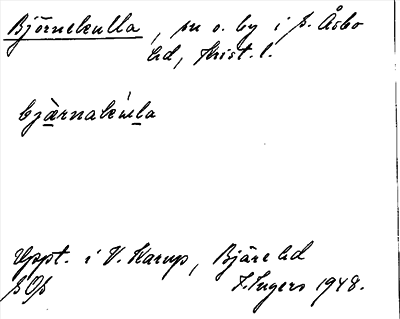 Björnekulla, sn o. by i S. Åsbo
hd, Krist. l.
bjàrnakúla
Uppt. i V. Karup, Bjäre hd
SOS I. Ingers 1948.